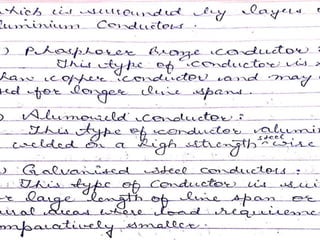 which is surrounded by layers o
luminium Conductors.
) Phosphorer Bronze conductor:
This type of conductor is
han copper conductor and may
sed for longer line spans.
) Alumoweld conductor:
This type of conductor alumin
welded on a high strength steel wire
) Galvanised steel conductors:
This type of conductor is sui
or large length of line span or
ural areas where load requireme
omparatively smaller.